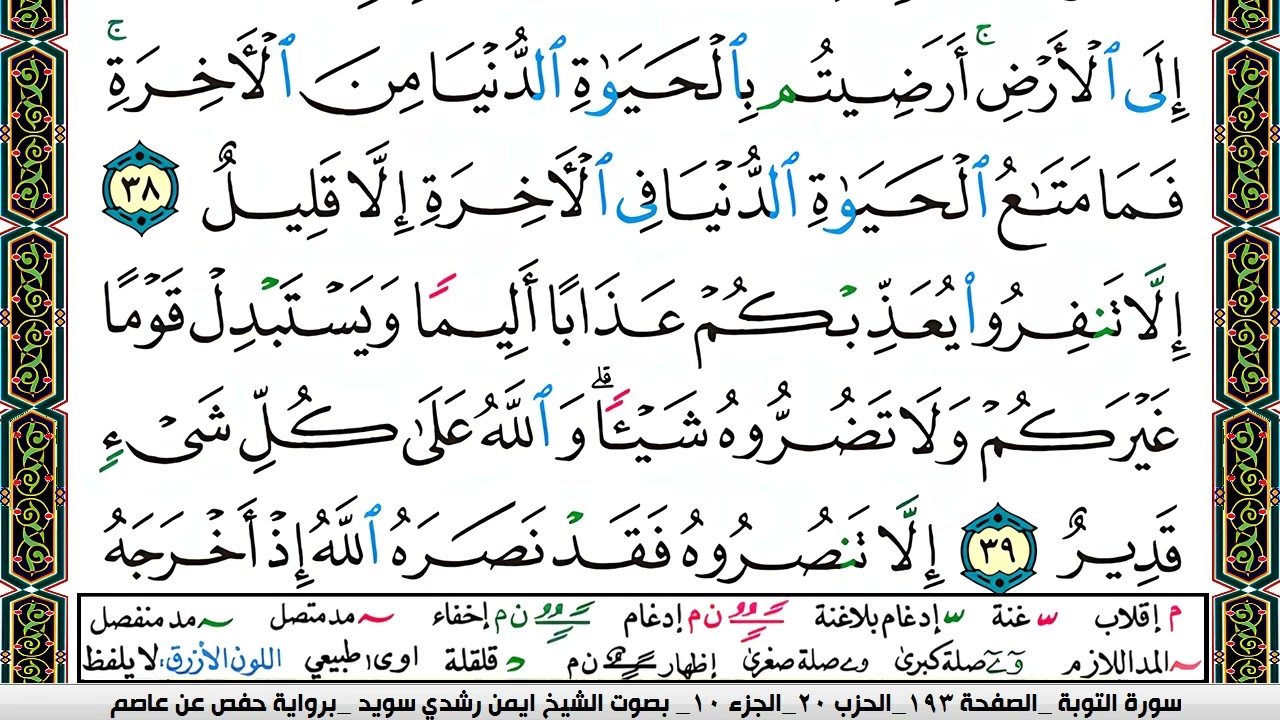 إِلَى ٱلْأَرْضِ ۚ أَرَضِيتُم بِٱلْحَيَوٰةِ ٱلدُّنْيَا مِنَ ٱلْأَخِرَةِ ۚ
فَمَا مَتَـٰعُ ٱلْحَيَوٰةِ ٱلدُّنْيَا فِى ٱلْأَخِرَةِ إِلَّا قَلِيلٌ ٣٨
إِلَّا تَنفِرُوا۟ يُعَذِّبْكُمْ عَذَابًا أَلِيمًا وَيَسْتَبْدِلْ قَوْمًا
غَيْرَكُمْ وَلَا تَضُرُّوهُ شَيْـًٔا ۗ وَٱللَّهُ عَلَىٰ كُلِّ شَىْءٍ
قَدِيرٌ ٣٩ إِلَّا تَنصُرُوهُ فَقَدْ نَصَرَهُ ٱللَّهُ إِذْ أَخْرَجَهُ
م إقلاب س غنة س إدغام بلاغنة ن م إدغام ن م إخفاء مد متصل مد منفصل
المد اللازم صلة كبرى صلة صغرى إظهار ن م د قلقلة اوى طبيعي اللون الأزرق، لا يلفظ
سورة التوبة _الصفحة ١٩٣_الحزب ٢٠_الجزء ١٠_ بصوت الشيخ ايمن رشدي سويد _برواية حفص عن عاصم